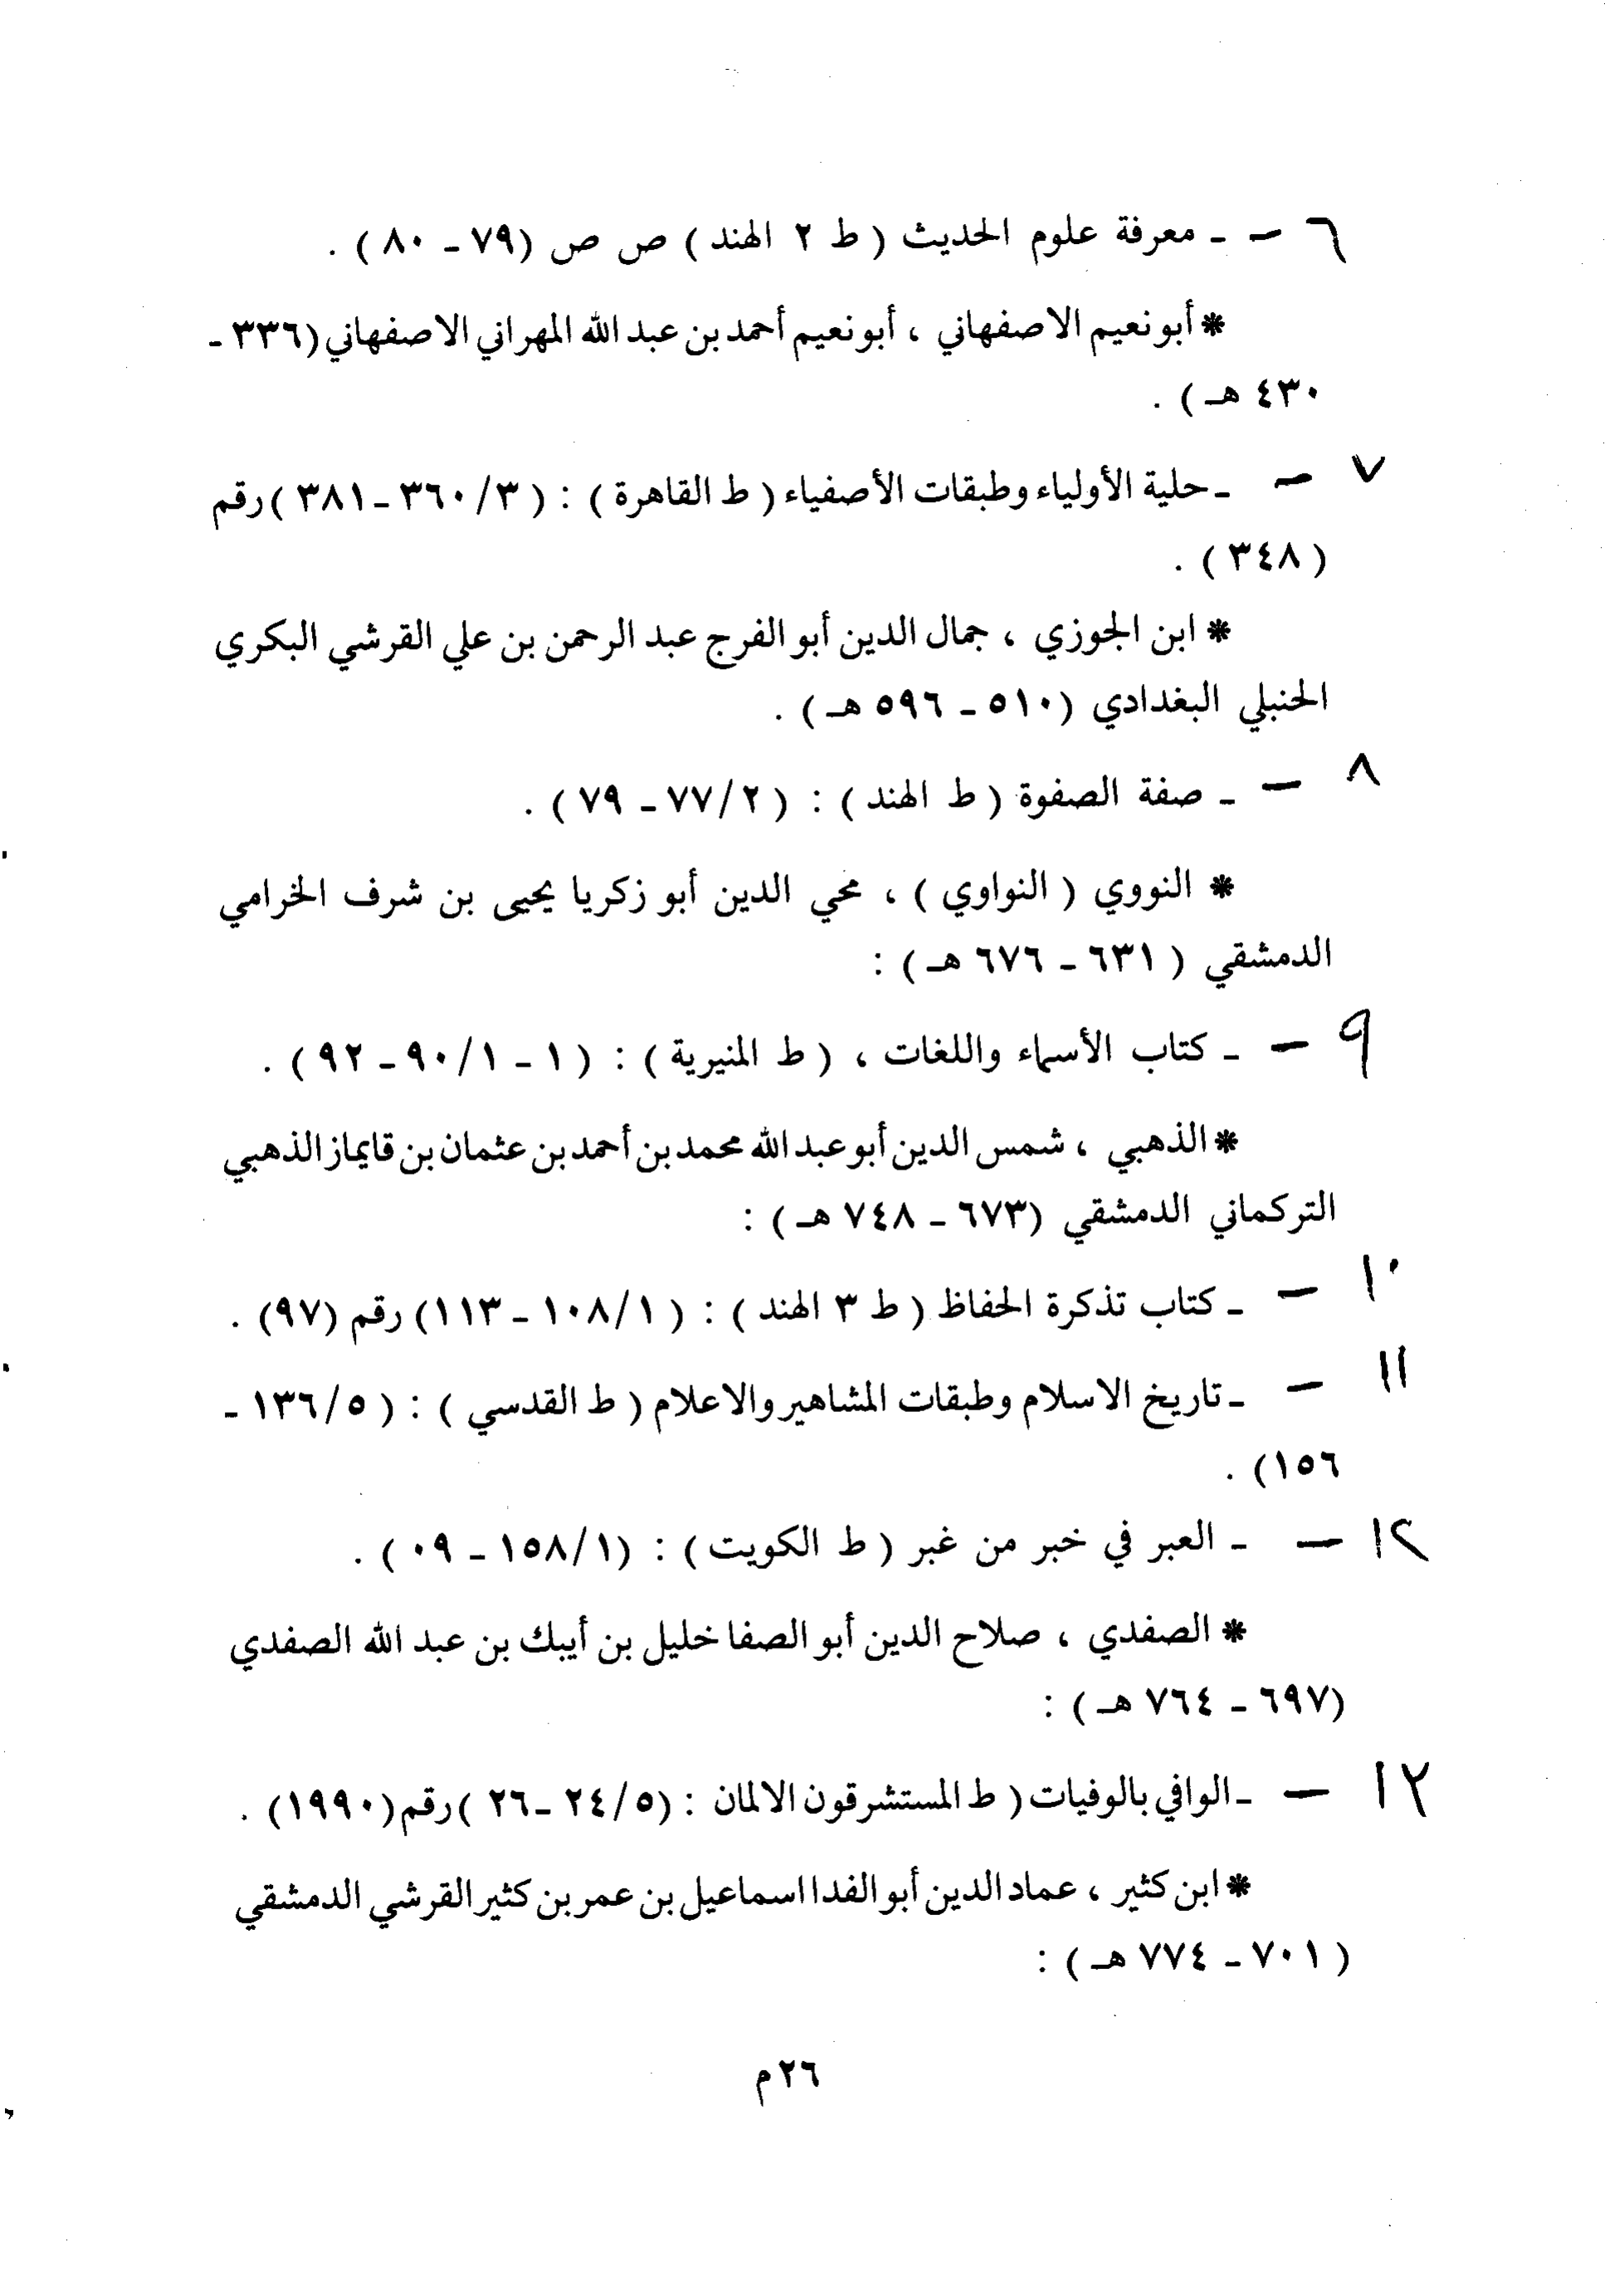 ٦ - - معرفة علوم الحديث ( ط ٢ الهند ) ص ص (٧٩ - ٨٠ ) .
* أبو نعيم الاصفهاني ، أبو نعيم أحمد بن عبد الله المهراني الاصفهاني (٣٣٦ -
٤٣٠ هـ ) .
٧ - - حلية الأولياء وطبقات الأصفياء ( ط القاهرة ) : ( ٣/ ٣٦٠ - ٣٨١ ) رقم
( ٣٤٨ ) .
* ابن الجوزي ، جمال الدين أبو الفرج عبد الرحمن بن علي القرشي البكري
الحنبلي البغدادي (٥١٠ - ٥٩٦ هـ ) .
٨ - - صفة الصفوة ( ط الهند ) : ( ٢/ ٧٧ - ٧٩ ) .
* النووي ( النواوي ) ، محي الدين أبو زكريا يحيى بن شرف الخرامي
الدمشقي ( ٦٣١ - ٦٧٦ هـ ) :
٩ - - كتاب الأسماء واللغات ، ( ط المنيرية ) : ( ١ - ١/ ٩٠ - ٩٢ ) .
* الذهبي ، شمس الدين أبو عبد الله محمد بن أحمد بن عثمان بن قايماز الذهبي
التركماني الدمشقي (٦٧٣ - ٧٤٨ هـ ) :
١٠ - - كتاب تذكرة الحفاظ ( ط ٣ الهند ) : ( ١/ ١٠٨ - ١١٣) رقم (٩٧) .
١١ - - تاريخ الاسلام وطبقات المشاهير والاعلام ( ط القدسي ) : ( ٥/ ١٣٦ -
١٥٦) .
١٢ - - العبر في خبر من غبر ( ط الكويت ) : (١/ ١٥٨ - ٠٩ ) .
* الصفدي ، صلاح الدين أبو الصفا خليل بن أيبك بن عبد الله الصفدي
(٦٩٧ - ٧٦٤ هـ ) :
١٢ - - الوافي بالوفيات ( ط المستشرقون الالمان : (٥/ ٢٤ - ٢٦ ) رقم (١٩٩٠) .
* ابن كثير ، عماد الدين أبو الفدا اسماعيل بن عمر بن كثير القرشي الدمشقي
( ٧٠١ - ٧٧٤ هـ ) :
٢٦م